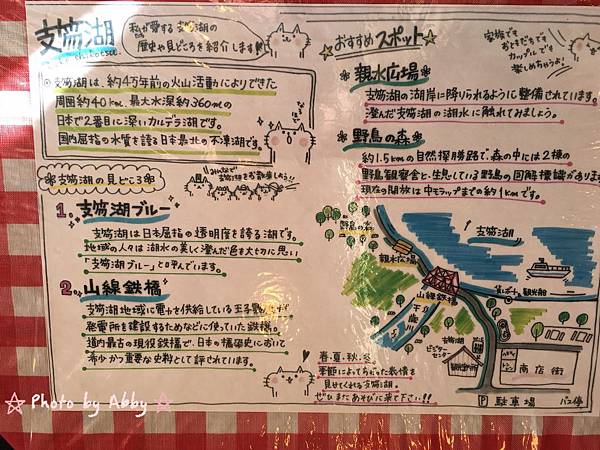 支笏湖
私が愛する支笏湖の
歴史や見どころを紹介します!!
支笏湖は、約4万年前の火山活動によりできた
周囲約40km 最大水深約360mの
日本で2番目に深いカルデラ湖です。
国内屈指の水質を誇る日本最北の不凍湖です。
支笏湖の見どころ
みんなで
1. 支笏湖ブルー
支笏湖は日本屈指の透明度を誇る湖です。
地域の人々は湖水の美しく澄んだ色を大切に思い
「支笏湖ブルー」と呼んでいます。
2. 山線鉄橋
支笏湖地域に電力を供給している王子製
発電所を建設するためなどに使っていた鉄橋。
道内最古の現役鉄橋で、日本の橋梁史において
希少かつ重要な史料として評されています。
おすすめスポット
家族でも
おともだちでも
カップルでも
楽しめちゃうよ!
親水広場
支笏湖の湖岸に降りられるように整備されています。
澄んだ支笏湖の湖水に触れてみましょう。
野鳥の森
約1.5kmの自然探勝路で、森の中には2棟の
野鳥観察舎と、生息している野鳥の図解標識があります
現在の開放は中モラップまでの約1kmです。
支笏湖
野鳥の森
親水広場
山線鉄橋
千歳川
観光船
支笏湖
ビジターセンター
商店街
P 駐車場
バス停
春・夏・秋・冬
季節によってちがった表情を
見せてくれる支笏湖。
ぜひまたあそびに来て下さい!!
☆ Photo by Abby ☆